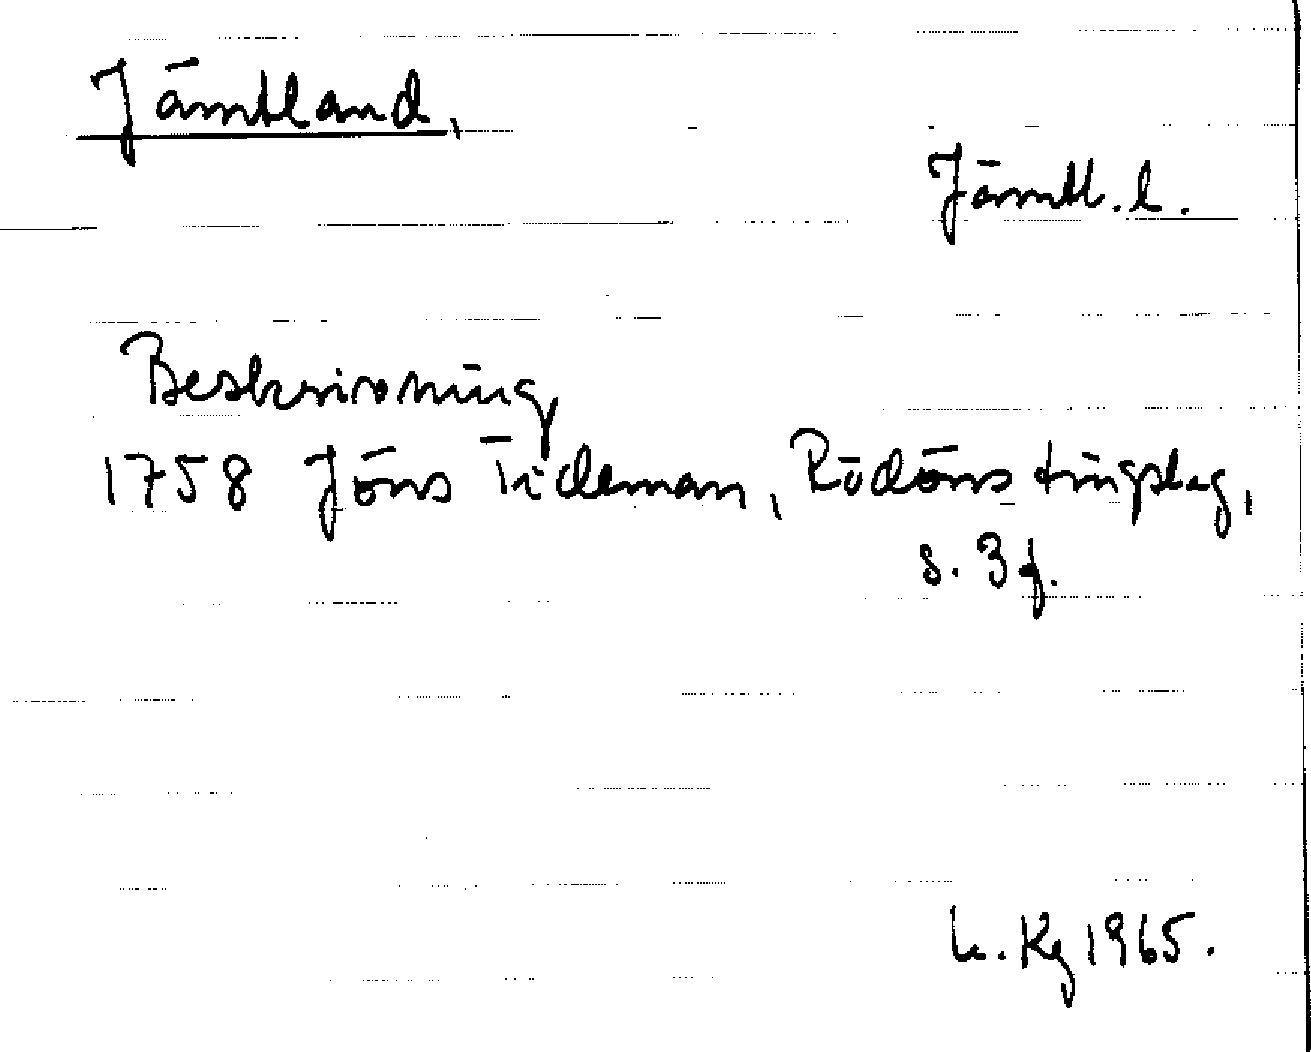 Jämtland,
Jämtl. l.
Beskrivning
1758 Jöns Tideman, Rödöns tingslag,
s. 3 f.
h. Kg 1965.